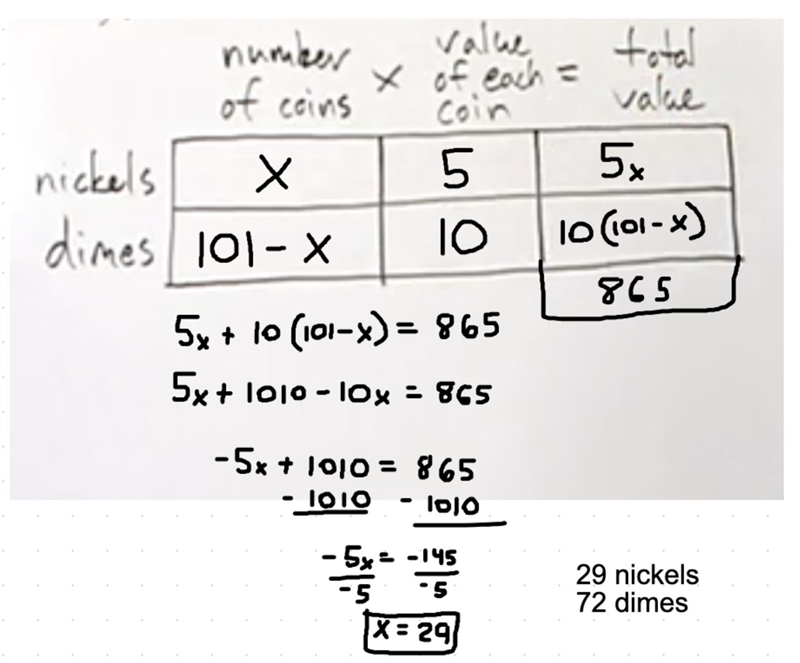 number of coins × value of each coin = total value
nickels x 5 5x
dimes 101 - x 10 10(101-x)
865
5x + 10(101-x) = 865
5x + 1010 - 10x = 865
-5x + 1010 = 865
- 1010 - 1010
-5x = -145
-5 -5
x = 29
29 nickels
72 dimes